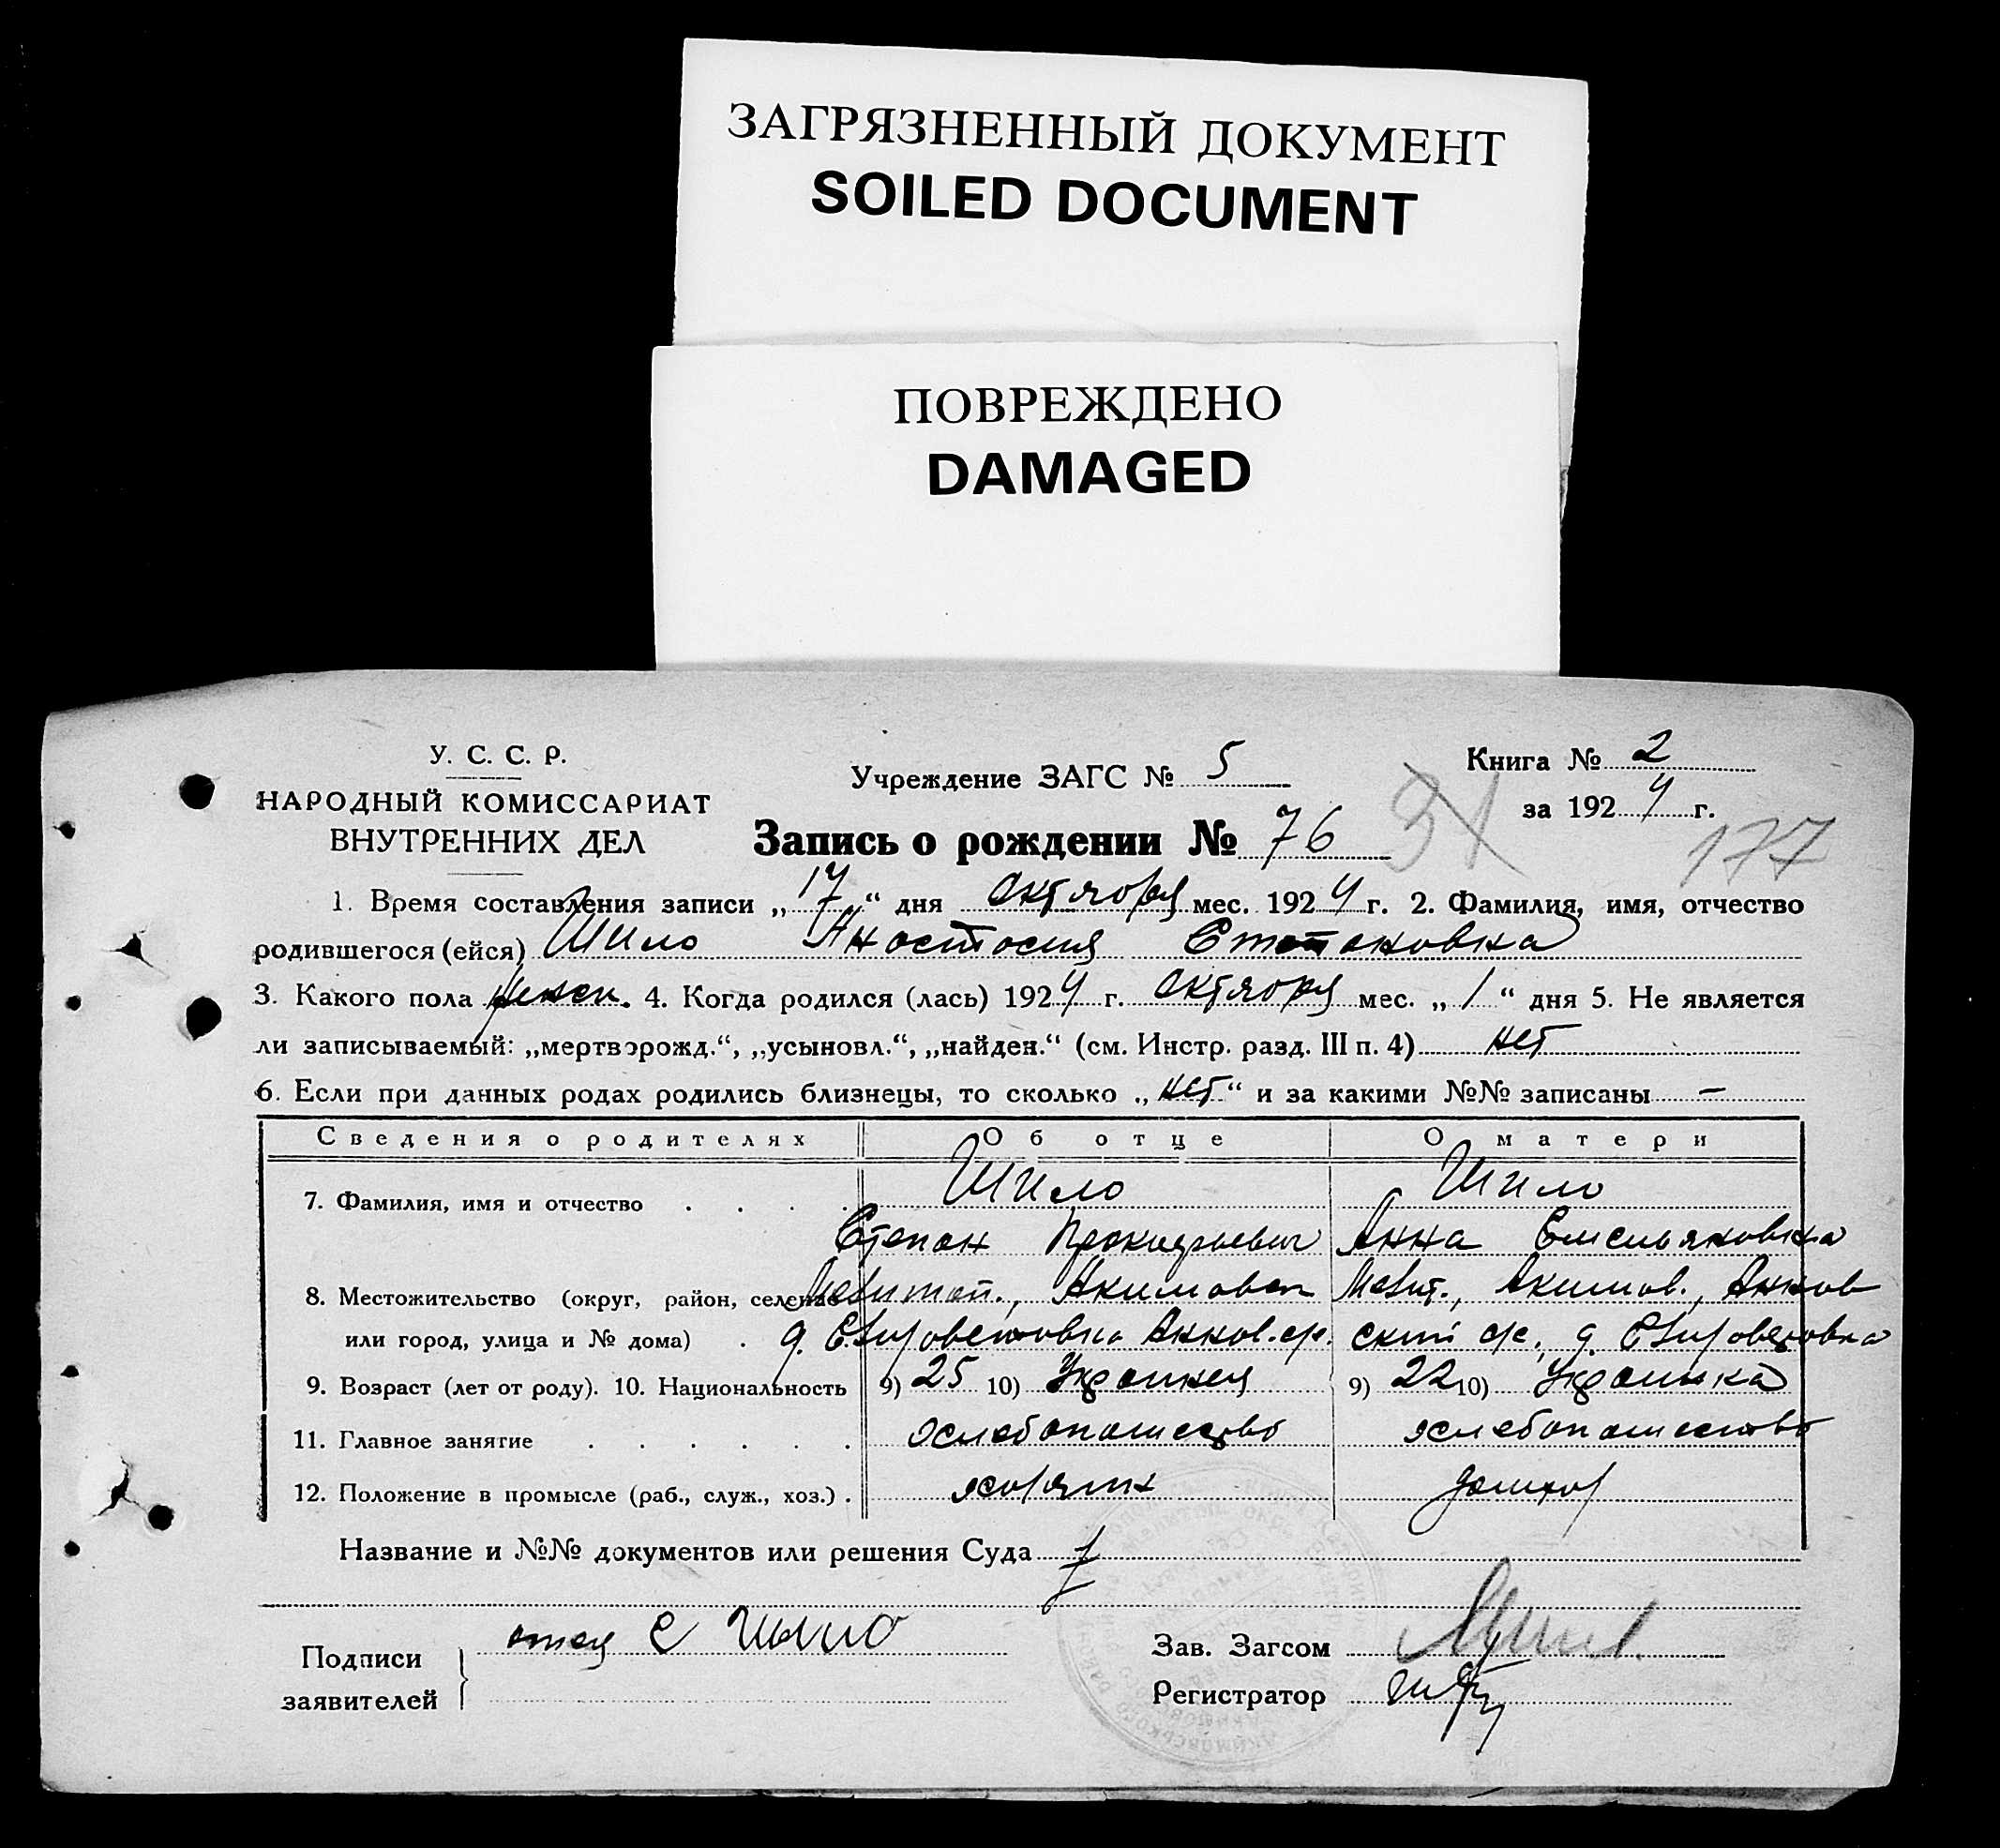 ЗАГРЯЗНЕННЫЙ ДОКУМЕНТ
SOILED DOCUMENT
ПОВРЕЖДЕНО
DAMAGED
У. С. С. Р.
НАРОДНЫЙ КОМИССАРИАТ
ВНУТРЕННИХ ДЕЛ
Учреждение ЗАГС № 5
Книга № 2
за 1924 г.
Запись о рождении № 76
31
177
1. Время составления записи „17“ дня Октября мес. 1924 г. 2. Фамилия, имя, отчество
родившегося (ейся) Шило Анастасия Степановна
3. Какого пола женск. 4. Когда родился (лась) 1924 г. Октября мес. „1“ дня 5. Не является
ли записываемый: „мертворожд.“, „усыновл.“, „найден.“ (см. Инстр. разд. III п. 4) нет
6. Если при данных родах родились близнецы, то сколько „нет“ и за какими №№ записаны —
Сведения о родителях Об отце О матери
7. Фамилия, имя и отчество Шило Шило
Степан Анна Емельяновна
8. Местожительство (округ, район, селение Мелитоп., Акимовск Мелит., Акимов., Аннов
или город, улица и № дома) д. Аннов. с/с. ский с/с., д.
9. Возраст (лет от роду). 10. Национальность 9) 25 10) Украинец 9) 22 10) Украинка
11. Главное занятие хлебопашество хлебопашество
12. Положение в промысле (раб., служ., хоз.) хозяин домхоз
Название и №№ документов или решения Суда
Подписи
заявителей
отец С Шыло
Зав. Загсом
Регистратор